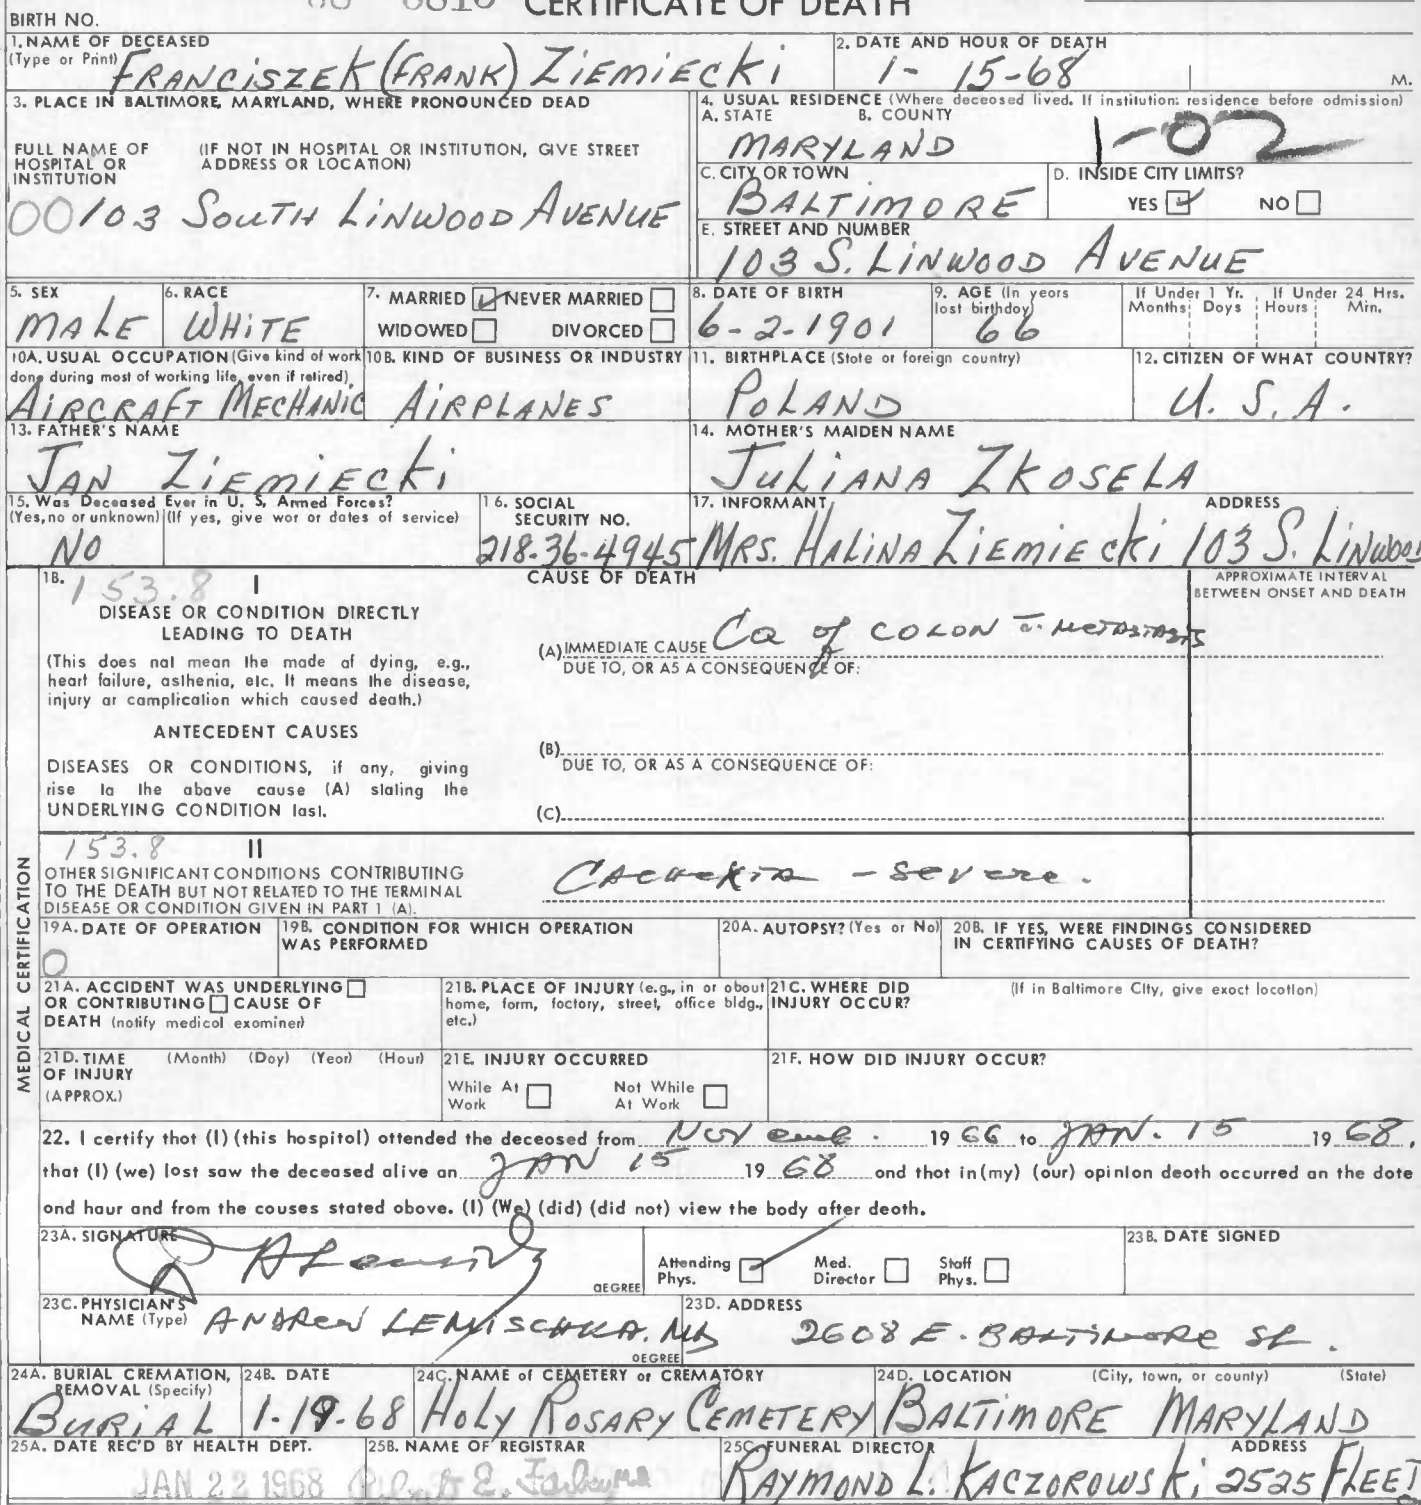 CERTIFICATE OF DEATH
BIRTH NO.
1. NAME OF DECEASED
(Type or Print) FRANCISZEK (FRANK) ZIEMIECKI
2. DATE AND HOUR OF DEATH
1-15-68 M.
3. PLACE IN BALTIMORE, MARYLAND, WHERE PRONOUNCED DEAD
FULL NAME OF HOSPITAL OR INSTITUTION
(IF NOT IN HOSPITAL OR INSTITUTION, GIVE STREET ADDRESS OR LOCATION)
00 103 SOUTH LINWOOD AVENUE
4. USUAL RESIDENCE (Where deceased lived. If institution: residence before admission)
A. STATE B. COUNTY
MARYLAND 1-02
C. CITY OR TOWN
BALTIMORE
D. INSIDE CITY LIMITS?
YES NO
E. STREET AND NUMBER
103 S. LINWOOD AVENUE
5. SEX
MALE
6. RACE
WHITE
7. MARRIED NEVER MARRIED
WIDOWED DIVORCED
8. DATE OF BIRTH
6-2-1901
9. AGE (In years last birthday)
66
If Under 1 Yr. Months Days
If Under 24 Hrs. Hours Min.
10A. USUAL OCCUPATION (Give kind of work done during most of working life, even if retired)
AIRCRAFT MECHANIC
10B. KIND OF BUSINESS OR INDUSTRY
AIRPLANES
11. BIRTHPLACE (State or foreign country)
POLAND
12. CITIZEN OF WHAT COUNTRY?
U. S. A.
13. FATHER'S NAME
JAN ZIEMIECKI
14. MOTHER'S MAIDEN NAME
JULIANA ZKOSELA
15. Was Deceased Ever in U. S. Armed Forces?
(Yes, no or unknown) (If yes, give war or dates of service)
NO
16. SOCIAL SECURITY NO.
218-36-4945
17. INFORMANT ADDRESS
MRS. HALINA ZIEMIECKI 103 S. LINWOOD
MEDICAL CERTIFICATION
18. 153.8 I
CAUSE OF DEATH
APPROXIMATE INTERVAL BETWEEN ONSET AND DEATH
DISEASE OR CONDITION DIRECTLY
LEADING TO DEATH
(This does not mean the mode of dying, e.g.,
heart failure, asthenia, etc. It means the disease,
injury or complication which caused death.)
(A) IMMEDIATE CAUSE Ca of COLON c̄ METASTASIS
DUE TO, OR AS A CONSEQUENCE OF:
ANTECEDENT CAUSES
DISEASES OR CONDITIONS, if any, giving
rise to the above cause (A) stating the
UNDERLYING CONDITION last.
(B)
DUE TO, OR AS A CONSEQUENCE OF:
(C)
153.8 II
OTHER SIGNIFICANT CONDITIONS CONTRIBUTING
TO THE DEATH BUT NOT RELATED TO THE TERMINAL
DISEASE OR CONDITION GIVEN IN PART 1 (A).
CACHEXIA - SEVERE.
19A. DATE OF OPERATION
0
19B. CONDITION FOR WHICH OPERATION WAS PERFORMED
20A. AUTOPSY? (Yes or No)
20B. IF YES, WERE FINDINGS CONSIDERED IN CERTIFYING CAUSES OF DEATH?
21A. ACCIDENT WAS UNDERLYING
OR CONTRIBUTING CAUSE OF
DEATH (notify medical examiner)
21B. PLACE OF INJURY (e.g., in or about home, farm, factory, street, office bldg., etc.)
21C. WHERE DID INJURY OCCUR?
(If in Baltimore City, give exact location)
21D. TIME OF INJURY (APPROX.) (Month) (Day) (Year) (Hour)
21E. INJURY OCCURRED
While At Work Not While At Work
21F. HOW DID INJURY OCCUR?
22. I certify that (I) (this hospital) attended the deceased from 1966 to JAN. 15 1968,
that (I) (we) last saw the deceased alive on JAN 15 1968 and that in (my) (our) opinion death occurred on the date
and hour and from the causes stated above. (I) (We) (did) (did not) view the body after death.
23A. SIGNATURE
DEGREE
Attending Phys. Med. Director Staff Phys.
23B. DATE SIGNED
23C. PHYSICIAN'S NAME (Type)
ANDREW LEMISCHKA. MD
DEGREE
23D. ADDRESS
2608 E. BALTIMORE ST.
24A. BURIAL CREMATION, REMOVAL (Specify)
BURIAL
24B. DATE
1-19-68
24C. NAME of CEMETERY or CREMATORY
HOLY ROSARY CEMETERY
24D. LOCATION (City, town, or county) (State)
BALTIMORE MARYLAND
25A. DATE REC'D BY HEALTH DEPT.
JAN 22 1968
25B. NAME OF REGISTRAR
Robert E. Farber, M.D.
25C. FUNERAL DIRECTOR ADDRESS
RAYMOND L. KACZOROWSKI, 2525 FLEET